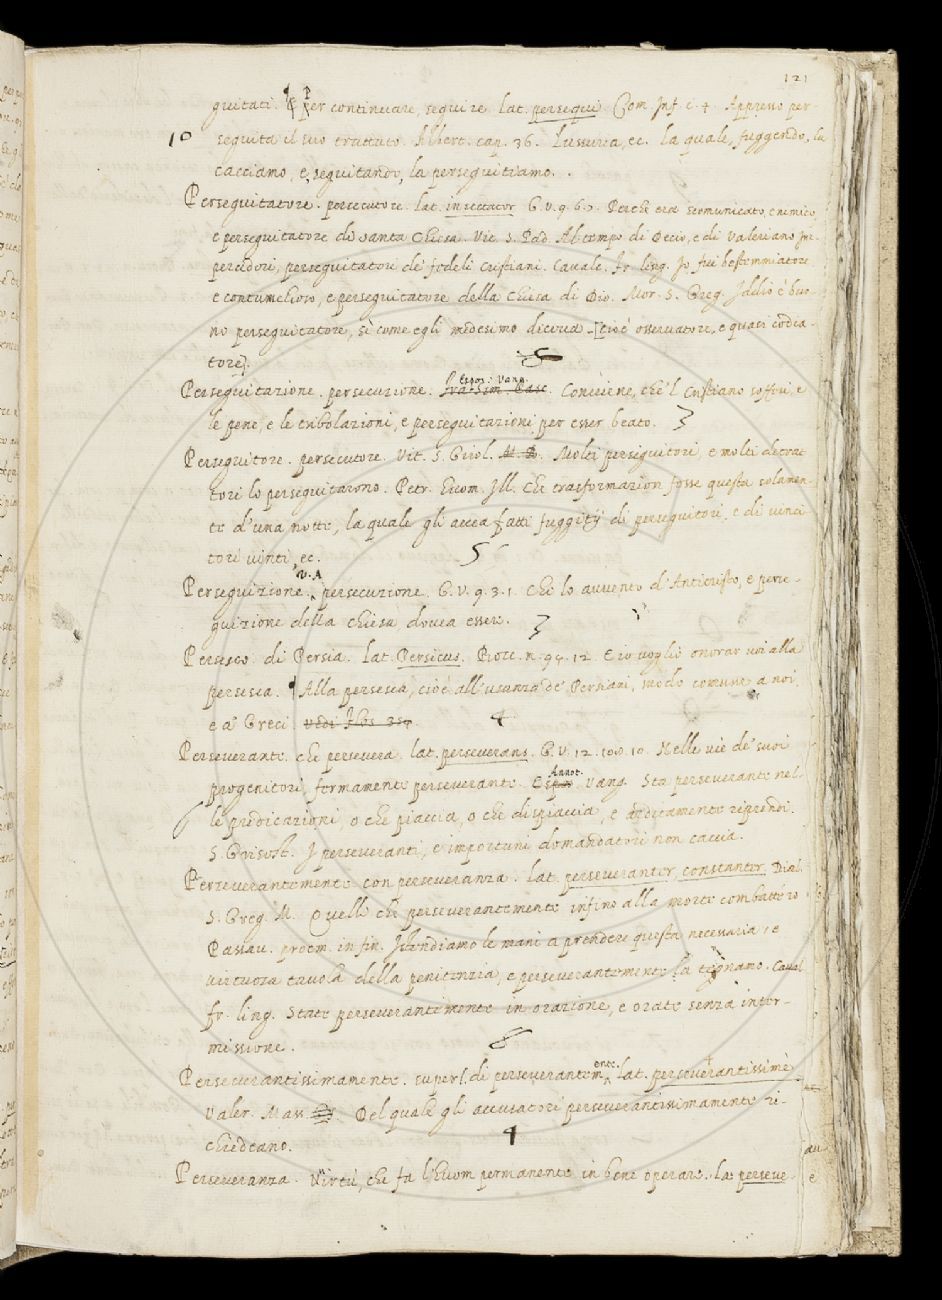 121
guitati. ¶ Per continuare, seguire lat. persequi Com. Inf. c. 4. Appresso per-
10 seguita il suo trattato. Albert. cap. 36. Lussuria, ec. la quale, fuggendo, la
cacciamo, e, seguitando, la perseguitiamo.
Perseguitatore. persecutore. lat. insectator G. V. 9. 6. Perchè era scomunicato, e nemico,
e perseguitatore di santa Chiesa. Vit. S. Pad. Al tempo di Decio, e di Valeriano Im-
peradori, perseguitatori de' fedeli Cristiani. Cavalc. fr. ling. Io fui bestemmiatore
e contumelioso, e perseguitatore della Chiesa di Dio. Mor. S. Greg. Iddio è buo-
no perseguitatore, sì come egli medesimo diceva [cioè osservatore, e quasi codia-
tore].
Perseguitazione. persecuzione. Espos. Vang. Conviene, che 'l Cristiano soffri, e
le pene, e le tribolazioni, e perseguitazioni per esser beato. 3
Perseguitore. persecutore. Vit. S. Girol. Molti perseguitori, e molti detrat-
tori lo perseguitarono. Petr. Huom. Ill. Che trasformazion fosse questa solamen-
te d'una notte, la quale gli avea fatti fuggiti di perseguitori, e di vinci-
tori vinti, ec. 5
Perseguizione. V. A. persecuzione. G. V. 9. 3. 1. Che lo avvento d'Anticristo, e perse-
guizione della Chiesa dovea essere. 3
Persesco di Persia. lat. Persicus. Bocc. n. 94. 12. E io voglio onorar voi alla
persesca. ¶ Alla persesca, cioè all'usanza de' Persiani, modo comune a noi
e a' Greci vedi Fbs. 354. 4
Perseverante che persevera lat. perseverans. G. V. 12. 108. 10. Nelle vie de' suoi
progenitori, fermamente perseverante. Annot. Vang. Sta perseverante nel-
le predicazioni, o che piaccia, o che dispiaccia, e arditamente riprendi.
S. Grisost. I perseveranti, e importuni domandatori non caccia.
Perseverantemente con perseveranza. lat. perseveranter, constanter. Dial.
S. Greg. M. Quelli che perseverantemente infino alla morte combattero
Passav. proem. in fin. Istendiamo le mani a prendere questa necessaria, e
virtuosa tavola della penitenzia, e perseverantemente la tegnamo. Caval.
fr. ling. State perseverantemente in orazione, e orate senza inter-
missione. 6
Perseverantissimamente. superl. di perseverantemente. lat. perseverantissimè
Valer. Mass. Del quale gli accusatori perseverantissimamente ri-
chiedeano. 4
Perseveranza. Virtù, che fa l'huom permanente in bene operare. lat. perseve-